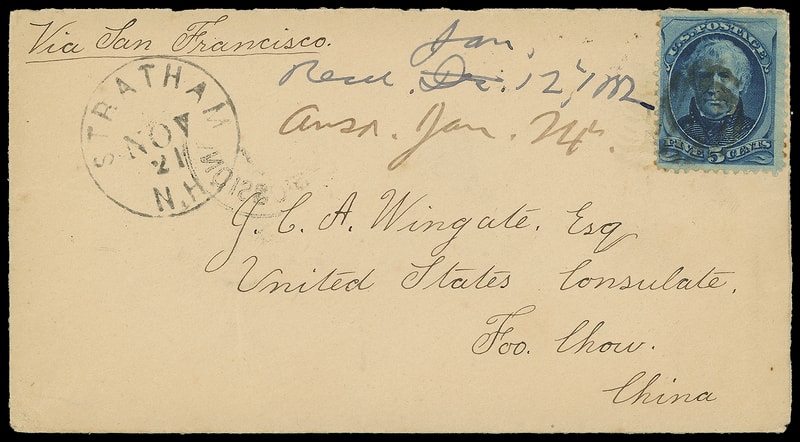 Via San Francisco.
Jan.
Recd. Dec. 12,/82
Ansd. Jan. 24.
U.S. POSTAGE
FIVE 5 CENTS
STRATHAM
NOV
21
N.H.
J. C. A. Wingate. Esq
United States Consulate.
Foo. Chow.
China